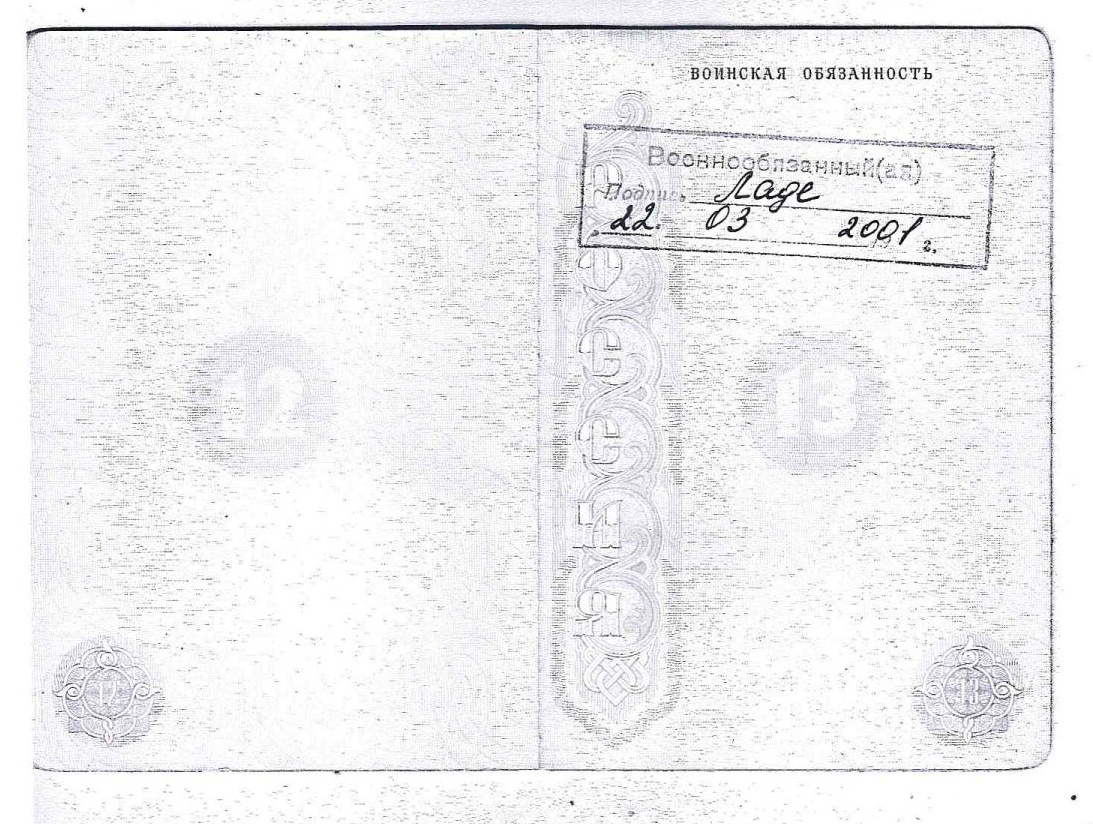 ВОИНСКАЯ ОБЯЗАННОСТЬ
Военнообязанный(ая)
Подпись Ладе
22. 03 2001 г.
12
13
12
13